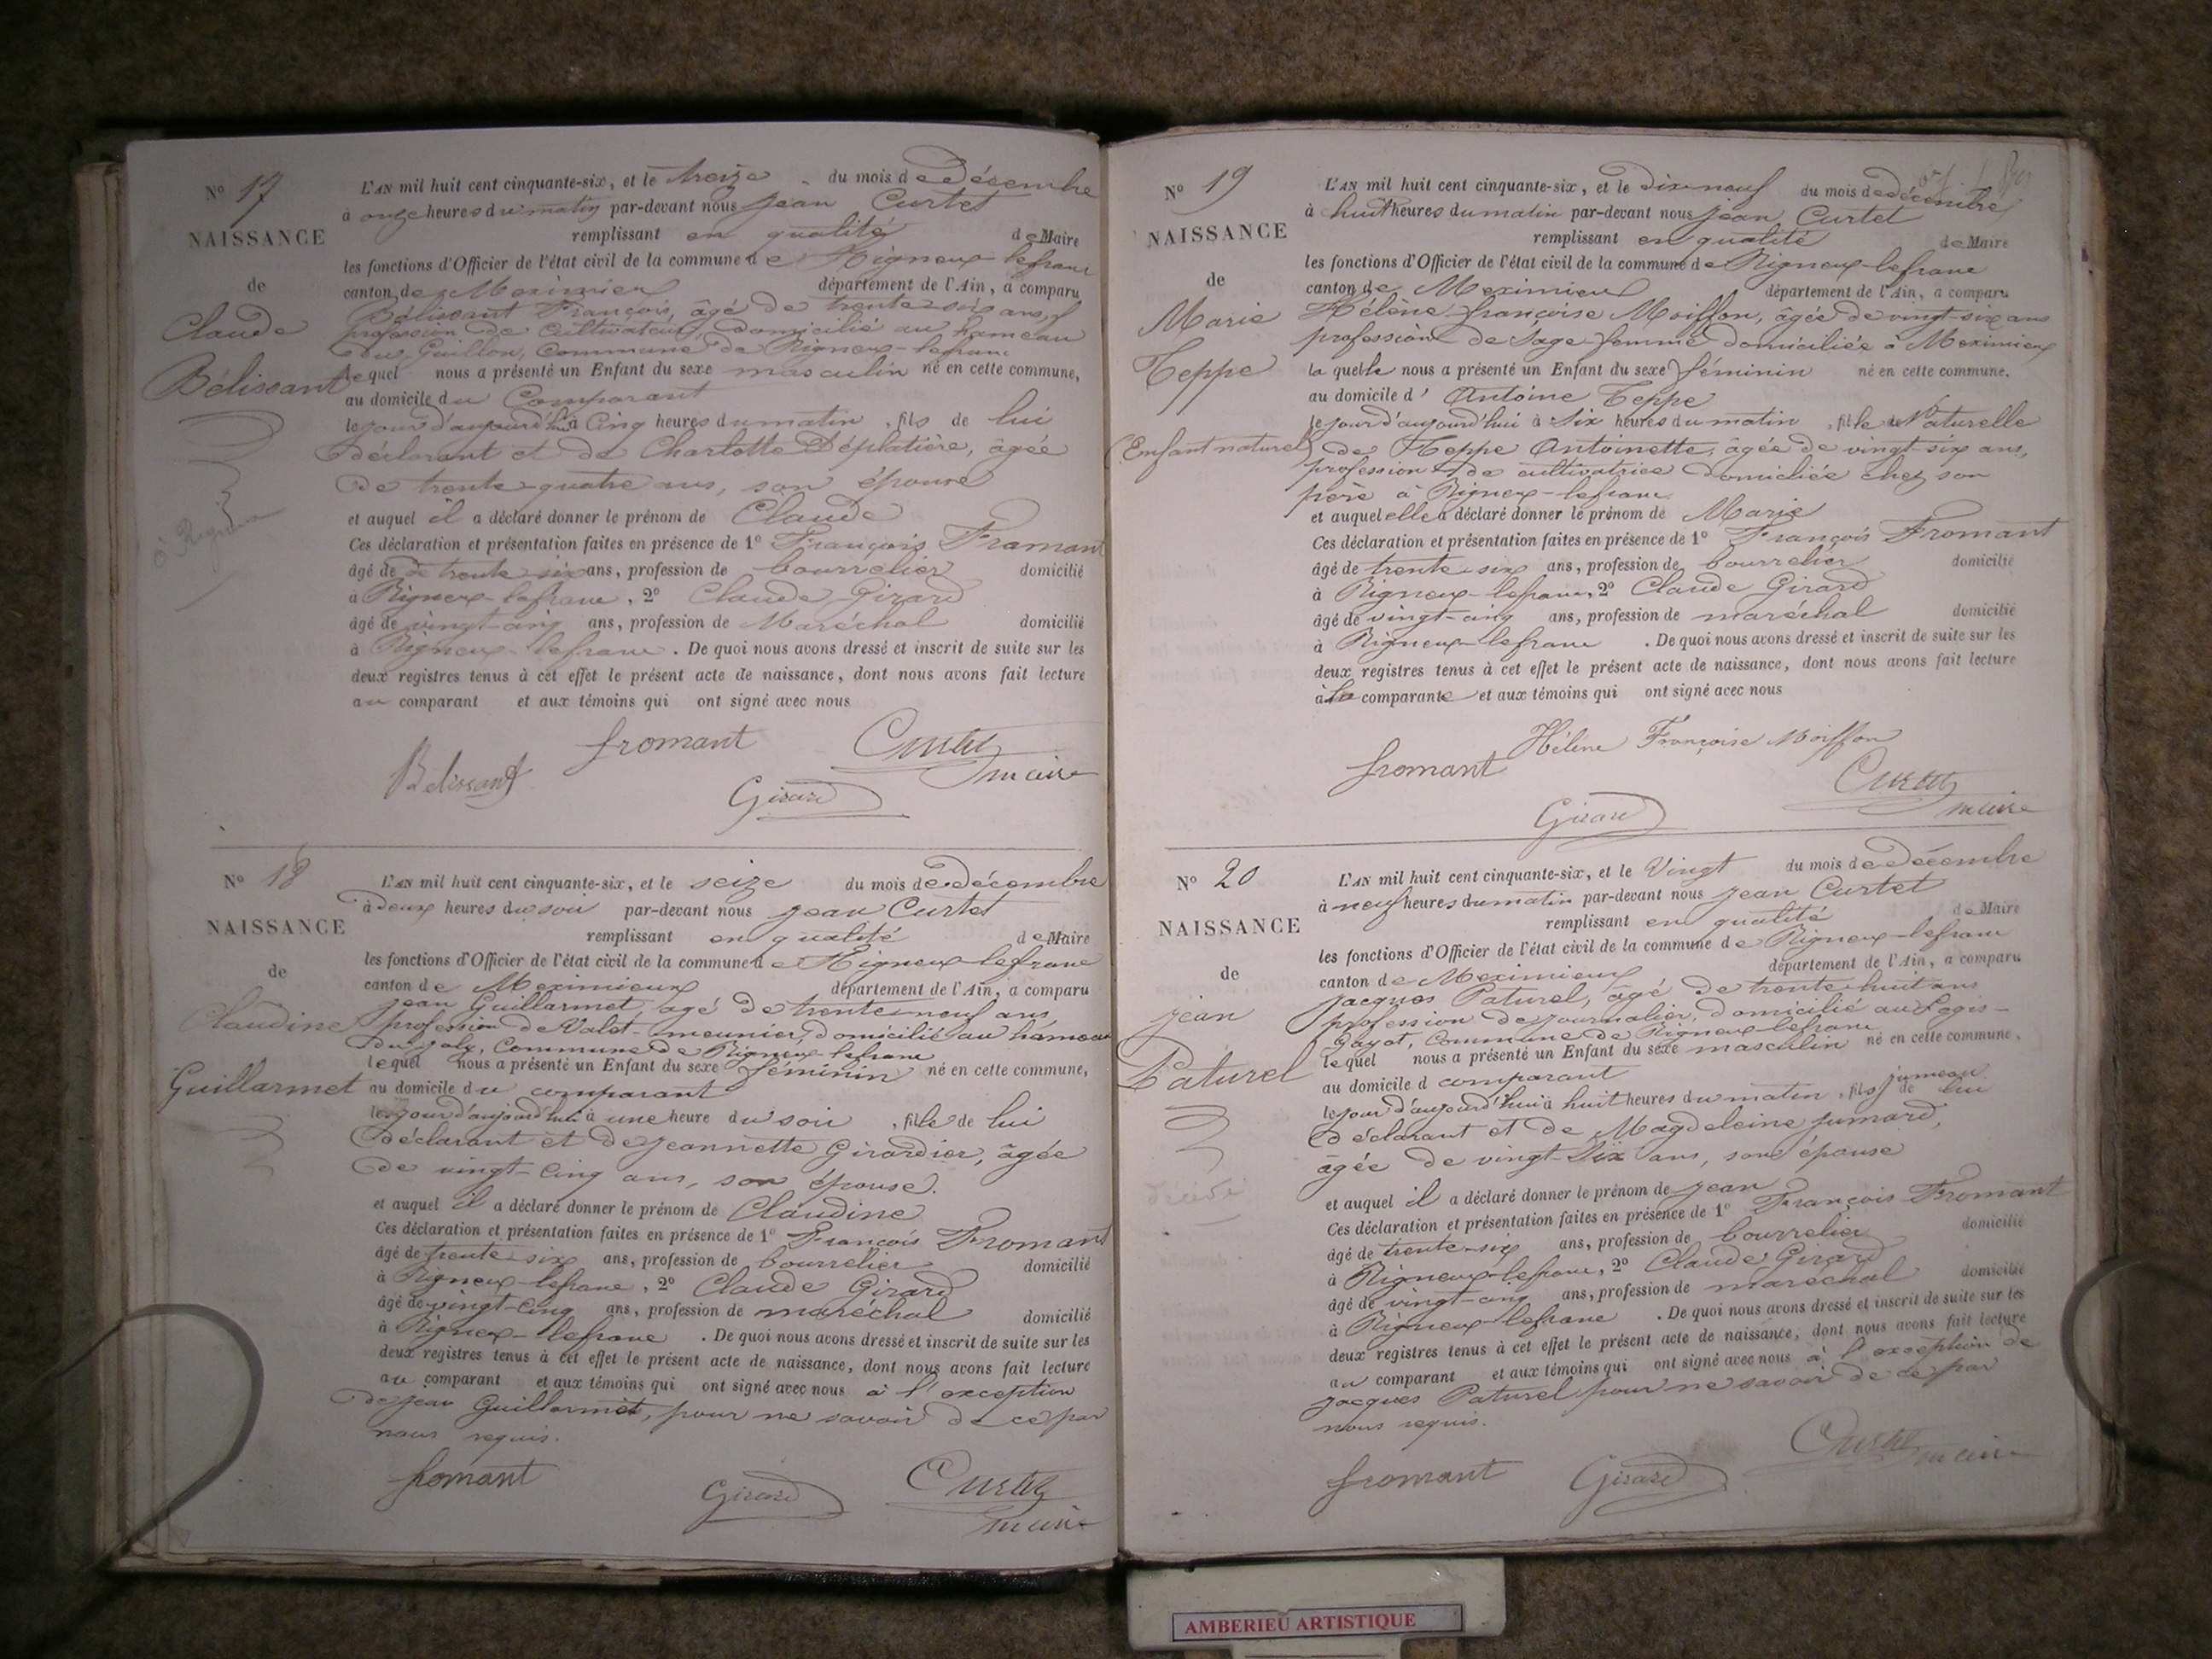 N° 17
NAISSANCE
de
Claude
Bélissant
à Rigneux
L'AN mil huit cent cinquante-six, et le treize du mois de Décembre
à onze heures du matin par-devant nous Jean Curtet
remplissant en qualité de Maire
les fonctions d'Officier de l'état civil de la commune de Rigneux-lefranc
canton de Meximieux département de l'Ain, a comparu
Bélissant François, âgé de trente-six ans,
profession de cultivateur, domicilié au hameau
du Guillon, Commune de Rigneux-lefranc
lequel nous a présenté un Enfant du sexe masculin né en cette commune,
au domicile du Comparant
le jour d'aujourd'hui à Cinq heures du matin, fils de lui
déclarant et de Charlotte Déplatière, âgée
de trente-quatre ans, son épouse
et auquel il a déclaré donner le prénom de Claude
Ces déclaration et présentation faites en présence de 1° François Fromant
âgé de de trente six ans, profession de bourrelier domicilié
à Rigneux-lefranc, 2° Claude Girard
âgé de vingt-cinq ans, profession de Maréchal domicilié
à Rigneux-lefranc. De quoi nous avons dressé et inscrit de suite sur les
deux registres tenus à cet effet le présent acte de naissance, dont nous avons fait lecture
au comparant et aux témoins qui ont signé avec nous
Belissant fromant Curtet
maire
Girard
N° 18
NAISSANCE
de
Claudine
Guillarmet
L'AN mil huit cent cinquante-six, et le seize du mois de décembre
à deux heures du soir par-devant nous Jean Curtet
remplissant en qualité de Maire
les fonctions d'Officier de l'état civil de la commune de Rigneux-lefranc
canton de Meximieux département de l'Ain, a comparu
Jean Guillarmet, âgé de trente-neuf ans,
profession de Valet-meunier, domicilié au hameau
du Joly, Commune de Rigneux-lefranc
lequel nous a présenté un Enfant du sexe féminin né en cette commune,
au domicile du comparant
le jour d'aujourd'hui à une heure du soir, fille de lui
Déclarant et de Jeannette Girardier, âgée
de vingt-cinq ans, son épouse.
et auquel il a déclaré donner le prénom de Claudine
Ces déclaration et présentation faites en présence de 1° François Fromant
âgé de trente-six ans, profession de bourrelier domicilié
à Rigneux-lefranc, 2° Claude Girard
âgé de vingt-cinq ans, profession de maréchal domicilié
à Rigneux-lefranc. De quoi nous avons dressé et inscrit de suite sur les
deux registres tenus à cet effet le présent acte de naissance, dont nous avons fait lecture
au comparant et aux témoins qui ont signé avec nous à l'exception
de Jean Guillarmet, pour ne savoir de ce par
nous requis.
fromant Girard Curtet
maire
N° 19
NAISSANCE
de
Marie
Teppe
Enfant naturel
L'AN mil huit cent cinquante-six, et le dix-neuf du mois de décembre
à huit heures du matin par-devant nous Jean Curtet
remplissant en qualité de Maire
les fonctions d'Officier de l'état civil de la commune de Rigneux-lefranc
canton de Meximieux département de l'Ain, a comparu
Hélène françoise Moiffon, âgée de vingt-six ans
profession de Sage femme domiciliée à Meximieux
laquelle nous a présenté un Enfant du sexe féminin né en cette commune.
au domicile d'Antoine Teppe
le jour d'aujourd'hui à Six heures du matin, fille Naturelle
de Teppe Antoinette, âgée de vingt-six ans,
profession de cultivatrice domiciliée chez son
père à Rigneux-lefranc
et auquel elle a déclaré donner le prénom de Marie
Ces déclaration et présentation faites en présence de 1° François Fromant
âgé de trente-six ans, profession de bourrelier domicilié
à Rigneux-lefranc, 2° Claude Girard
âgé de vingt-cinq ans, profession de maréchal domicilié
à Rigneux-lefranc. De quoi nous avons dressé et inscrit de suite sur les
deux registres tenus à cet effet le présent acte de naissance, dont nous avons fait lecture
à la comparante et aux témoins qui ont signé avec nous
Hélène Françoise Moiffon
fromant Curtet
maire
Girard
N° 20
NAISSANCE
de
Jean
Paturel
décédé
L'AN mil huit cent cinquante-six, et le Vingt du mois de Décembre
à neuf heures du matin par-devant nous Jean Curtet
remplissant en qualité de Maire
les fonctions d'Officier de l'état civil de la commune de Rigneux-lefranc
canton de Meximieux département de l'Ain, a comparu
Jacques Paturel, âgé de trente-huit ans
profession de Journalier, domicilié au Logis-
Gayot, Commune de Rigneux-lefranc
lequel nous a présenté un Enfant du sexe masculin né en cette commune,
au domicile d comparant
le jour d'aujourd'hui à huit heures du matin, fils jumeau de lui
déclarant et de Magdeleine Jumard,
âgée de vingt-six ans, son épouse
et auquel il a déclaré donner le prénom de Jean
Ces déclaration et présentation faites en présence de 1° François Fromant
âgé de trente-six ans, profession de bourrelier domicilié
à Rigneux-lefranc, 2° Claude Girard
âgé de vingt-cinq ans, profession de maréchal domicilié
à Rigneux-lefranc. De quoi nous avons dressé et inscrit de suite sur les
deux registres tenus à cet effet le présent acte de naissance, dont nous avons fait lecture
au comparant et aux témoins qui ont signé avec nous à l'exception de
Jacques Paturel pour ne savoir de ce par
nous requis.
fromant Girard Curtet maire
AMBERIEU ARTISTIQUE